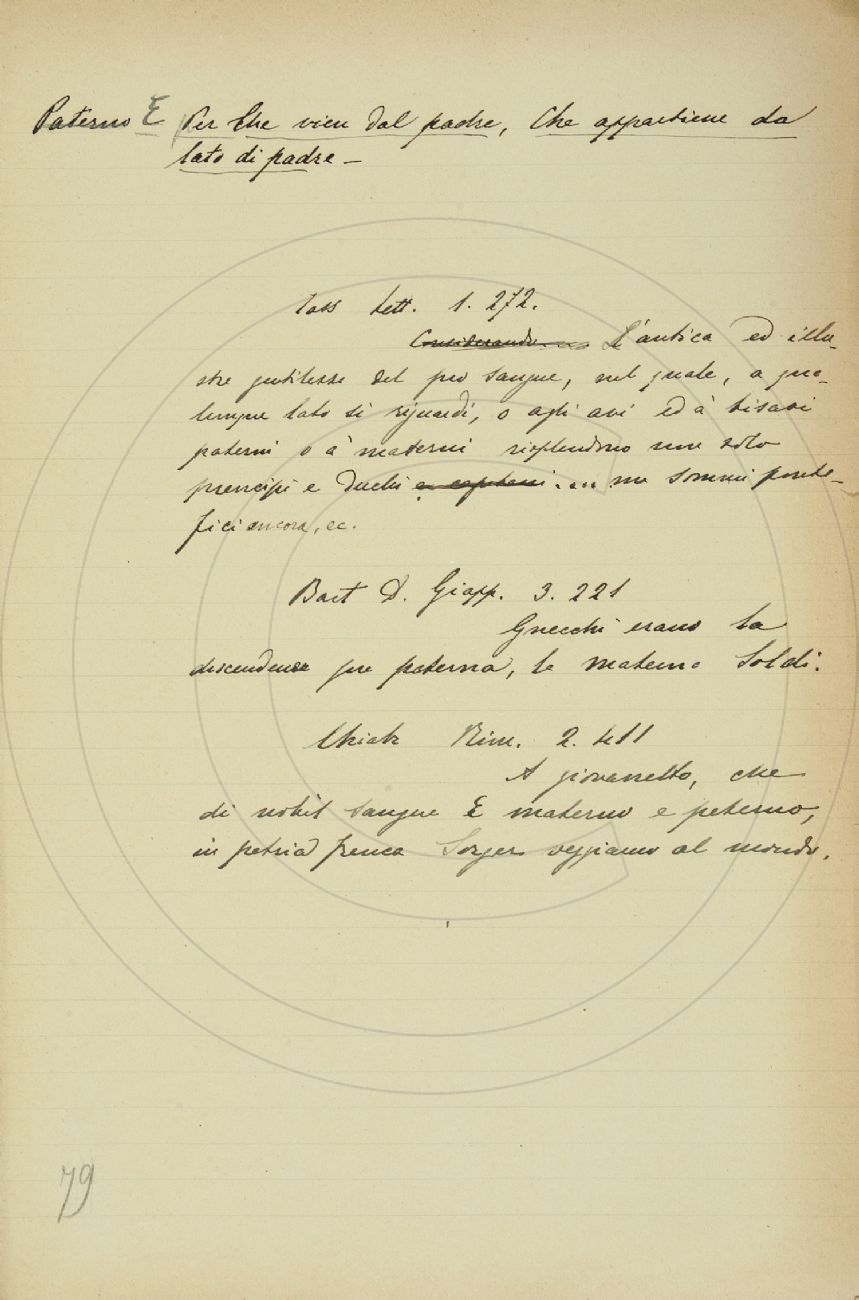 Paterno E Per Che vien dal padre, Che appartiene da
lato di padre —
Tass Lett. 1. 272.
Considerando L'antica ed illu-
stre gentilezza del suo sangue, nel quale, a qua-
lunque lato si riguardi, o agli avi ed a' bisavi
paterni o a' materni risplendono non solo
prencipi e duchi e capitani ... ma sommi ponte-
fici ancora, ec.
Bart D. Giapp. 3. 221
Gnecchi erano la
descendenza paterna, la materna Soldi.
Chiabr Rim. 2. 411
A giovanetto, che
di nobil sangue È materno e paterno,
in patria franca Sorger veggiamo al mondo.
79